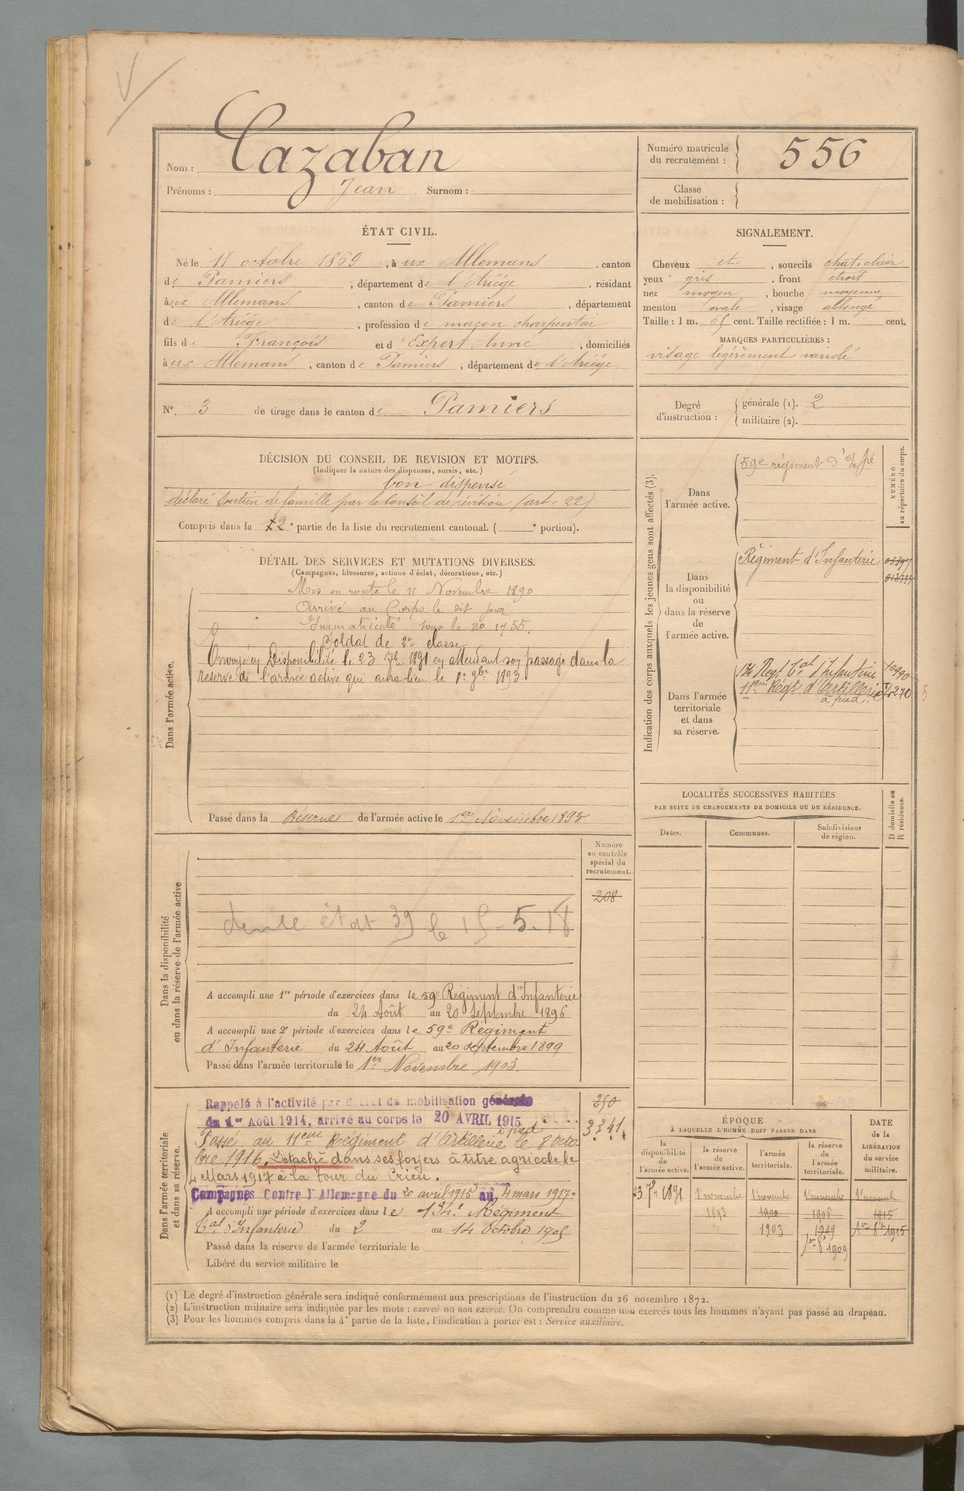 Nom : Cazaban
Prénoms : Jean Surnom :
Numéro matricule du recrutement : 556
Classe de mobilisation :
ÉTAT CIVIL.
Né le 11 octobre 1869, à ux Allemans, canton
de Pamiers, département de l'Ariège, résidant
à ux Allemans, canton de Pamiers, département
de l'Ariège, profession de maçon charpentier
fils de François et d'Expert Anne, domiciliés
à ux Allemans, canton de Pamiers, département de l'Ariège
SIGNALEMENT.
Cheveux et, sourcils chat. clair
yeux gris, front étroit
nez moyen, bouche moyenne
menton ovale, visage allongé
Taille : 1 m. cent. Taille rectifiée : 1 m. cent.
MARQUES PARTICULIÈRES :
visage légèrement variolé
N° 3 de tirage dans le canton de Pamiers
Degré d'instruction : générale (1). 2
militaire (2).
DÉCISION DU CONSEIL DE REVISION ET MOTIFS.
(Indiquer la nature des dispenses, sursis, etc.)
bon dispensé
déclaré soutien de famille par le Conseil de révision (art. 22)
Compris dans la 2e partie de la liste du recrutement cantonal. ( e portion).
DÉTAIL DES SERVICES ET MUTATIONS DIVERSES.
(Campagnes, blessures, actions d'éclat, décorations, etc.)
Mis en route le 11 Novembre 1890
Arrivé au Corps le dit jour
Immatriculé sous le no 1755.
Soldat de 2e classe
Envoyé en Disponibilité le 23 7bre 1891 en attendant son passage dans la
réserve de l'armée active qui aura lieu le 1er 9bre 1893.
Dans l'armée active.
Passé dans la Réserve de l'armée active le 1er Novembre 1893
Indication des corps auxquels les jeunes gens sont affectés (3).
NUMÉRO au répertoire du corps.
Dans l'armée active.
59e régiment d'Infie
Dans la disponibilité ou dans la réserve de l'armée active.
Régiment d'Infanterie
Dans l'armée territoriale et dans sa réserve.
134 Régt tal d'Infanterie
11eme Régt d'Artillerie
à pied
LOCALITÉS SUCCESSIVES HABITÉES
PAR SUITE DE CHANGEMENTS DE DOMICILE OU DE RÉSIDENCE.
Dates.
Communes.
Subdivisions de région.
D domicile ou R résidence.
Numéro au contrôle spécial du recrutement.
208
Dans la disponibilité ou dans la réserve de l'armée active
état 39 le 15-5-18
A accompli une 1re période d'exercices dans le 59e Régiment d'Infanterie
du 24 Août au 20 Septembre 1896
A accompli une 2e période d'exercices dans le 59e Régiment
d'Infanterie du 24 Août au 20 septembre 1899
Passé dans l'armée territoriale le 1er Novembre 1903.
Dans l'armée territoriale et dans sa réserve.
Rappelé à l'activité par décret de mobilisation générale
du 1er Août 1914, arrivé au corps le 20 AVRIL 1915
Passé au 11eme Régiment d'Artillerie à pied le 8 Octo
bre 1916. Détaché dans ses foyers à titre agricole le
4 Mars 1917 à la Tour du Crieu.
Campagnes Contre l'Allemagne du 20 avril 1915 au 4 mars 1917.
A accompli une période d'exercices dans le 134e Régiment
tal d'Infanterie du 2 au 14 Octobre 1905
Passé dans la réserve de l'armée territoriale le
Libéré du service militaire le
250
3241
ÉPOQUE
À LAQUELLE L'HOMME DOIT PASSER DANS
la disponibilité de l'armée active.
la réserve de l'armée active.
l'armée territoriale.
la réserve de l'armée territoriale.
DATE de la LIBÉRATION du service militaire.
23 7bre 1891
1 novembre 1893
1 novembre 1900 1903
1 novembre 1906 1909
1er 8bre 1909
1 novembre 1915
1er 8bre 1915
(1) Le degré d'instruction générale sera indiqué conformément aux prescriptions de l'instruction du 26 novembre 1872.
(2) L'instruction militaire sera indiquée par les mots : exercé ou non exercé. On comprendra comme non exercés tous les hommes n'ayant pas passé au drapeau.
(3) Pour les hommes compris dans la 4e partie de la liste, l'indication à porter est : Service auxiliaire.